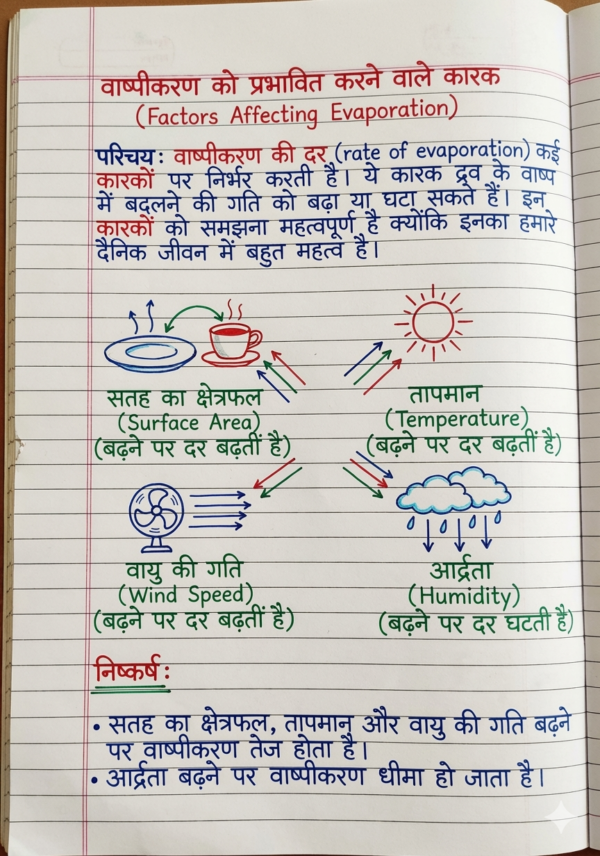 वाष्पीकरण को प्रभावित करने वाले कारक
(Factors Affecting Evaporation)
परिचय: वाष्पीकरण की दर (rate of evaporation) कई
कारकों पर निर्भर करती है। ये कारक द्रव के वाष्प
में बदलने की गति को बढ़ा या घटा सकते हैं। इन
कारकों को समझना महत्वपूर्ण है क्योंकि इनका हमारे
दैनिक जीवन में बहुत महत्व है।
सतह का क्षेत्रफल
(Surface Area)
(बढ़ने पर दर बढ़तीं है)
तापमान
(Temperature)
(बढ़ने पर दर बढ़तीं है)
वायु की गति
(Wind Speed)
(बढ़ने पर दर बढ़तीं है)
आर्द्रता
(Humidity)
(बढ़ने पर दर घटती है)
निष्कर्ष:
• सतह का क्षेत्रफल, तापमान और वायु की गति बढ़ने
पर वाष्पीकरण तेज होता है।
• आर्द्रता बढ़ने पर वाष्पीकरण धीमा हो जाता है।